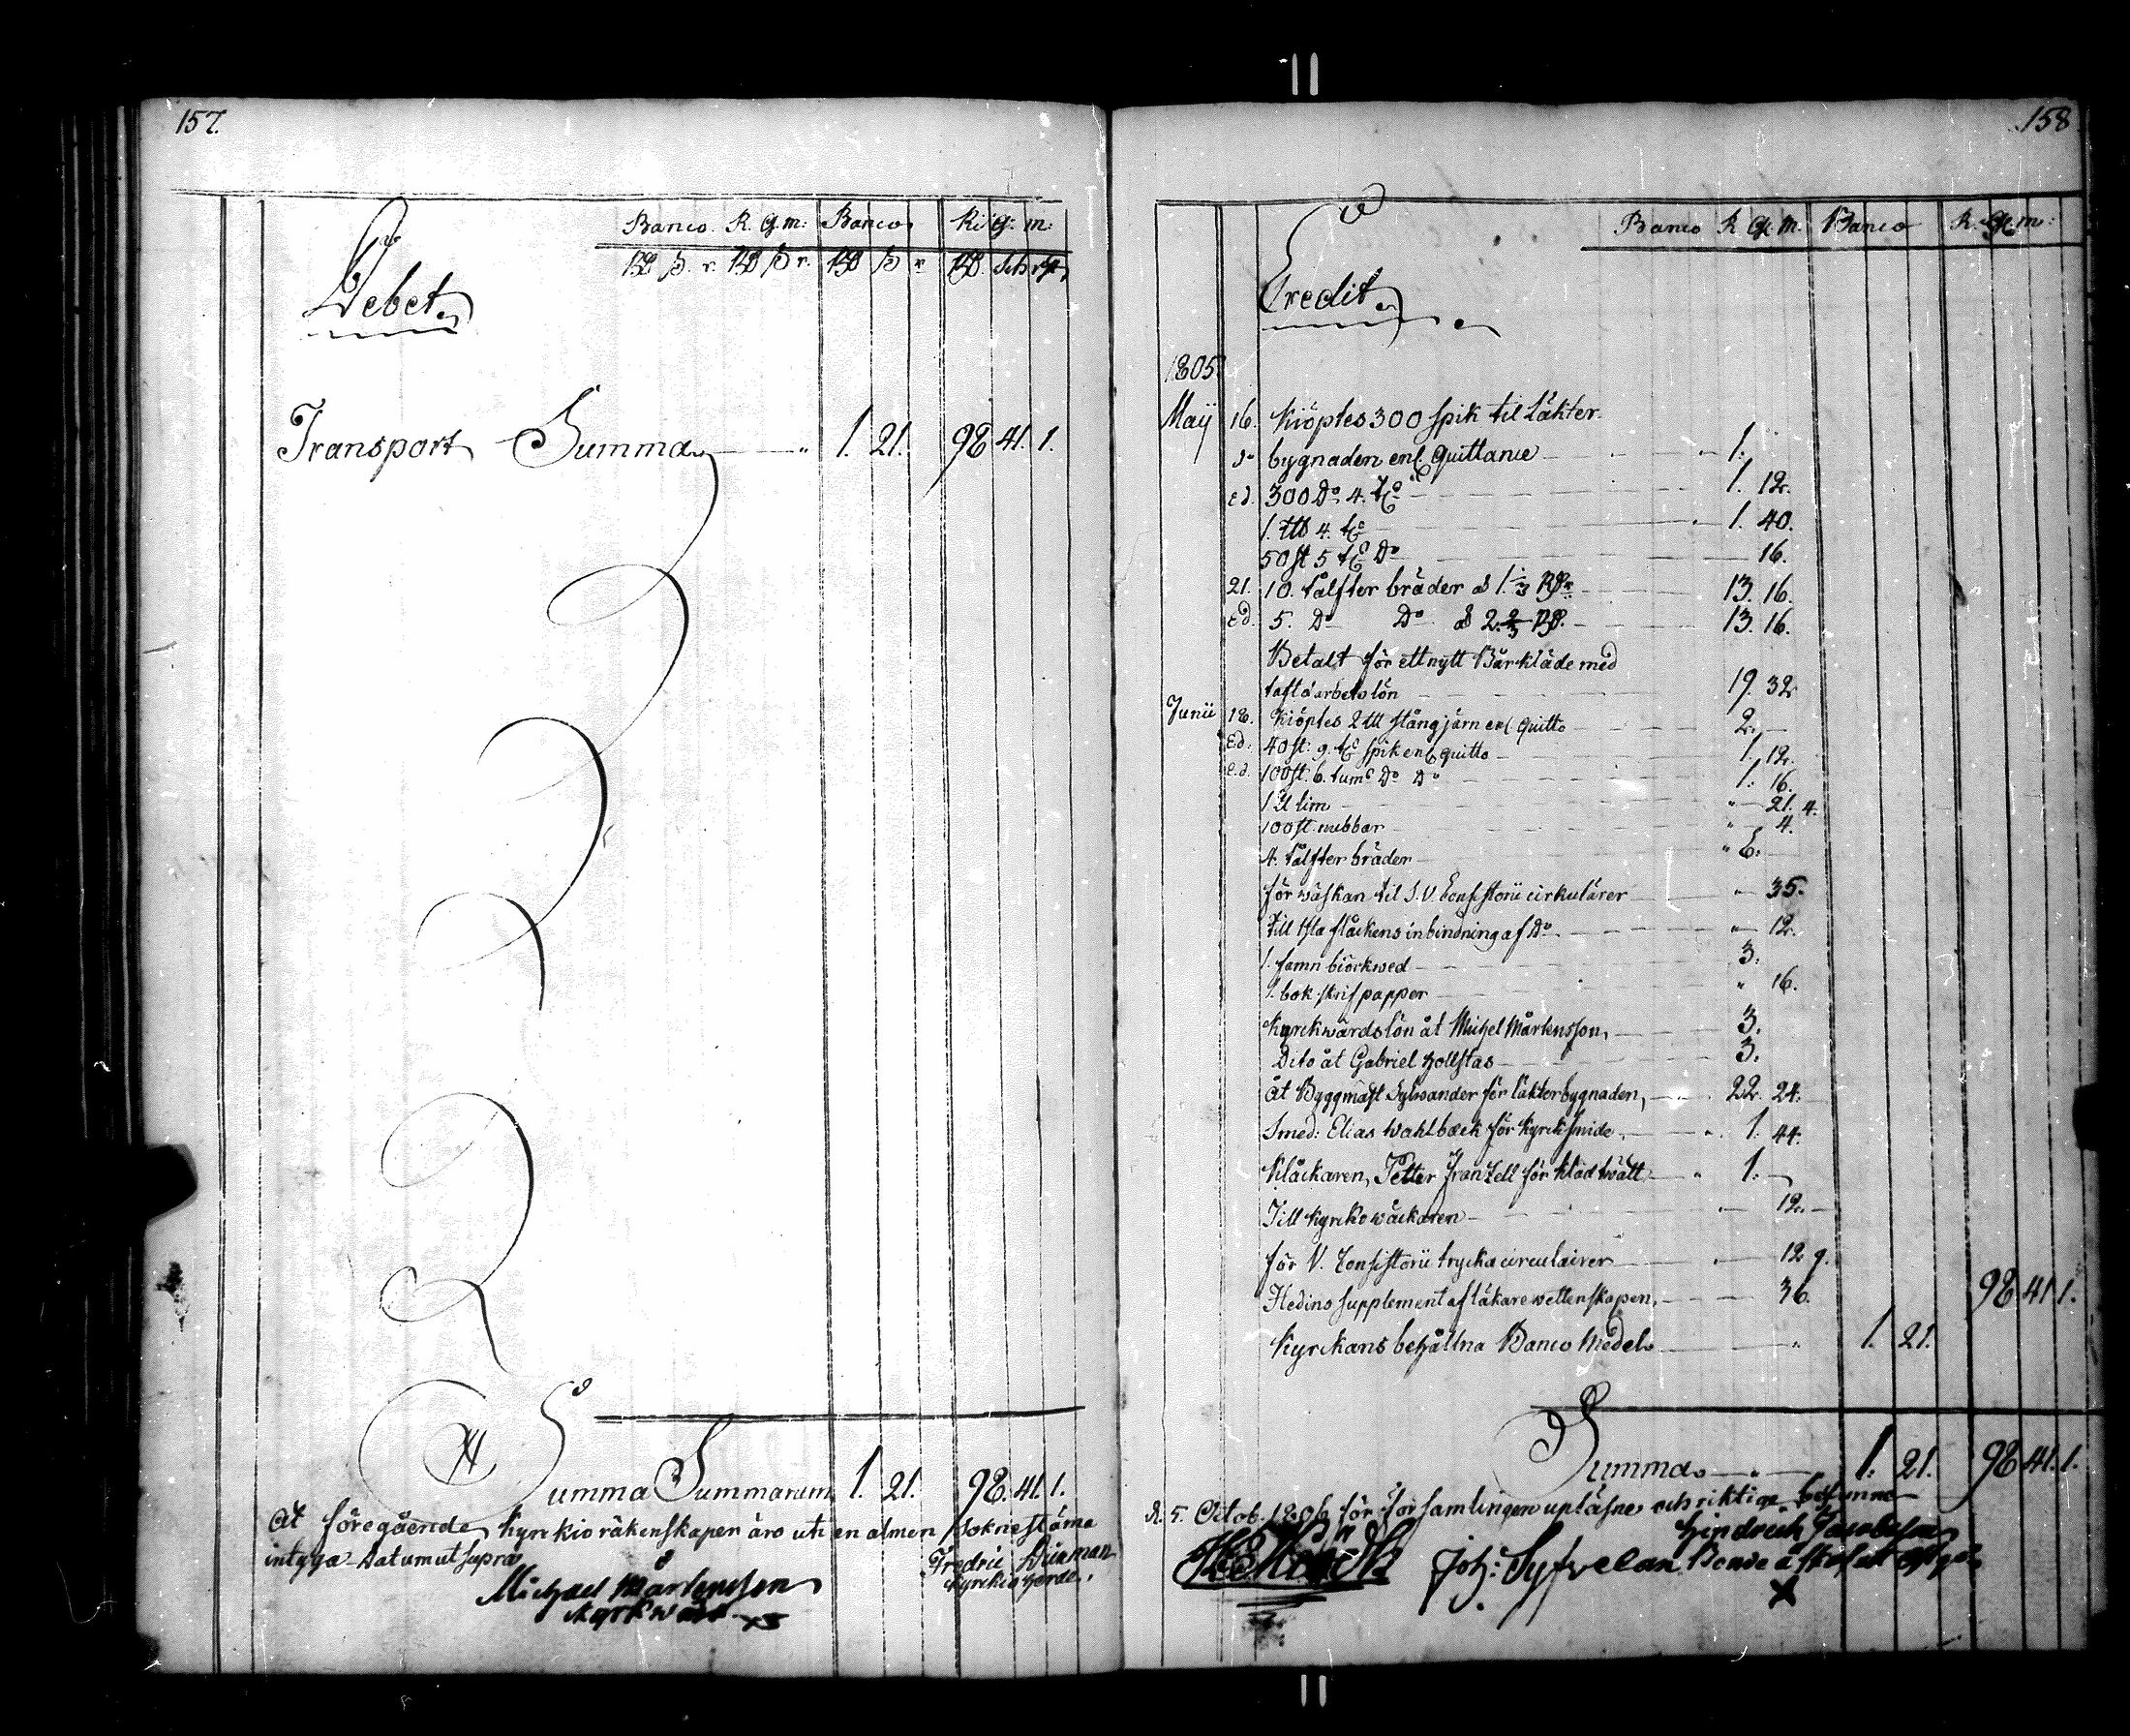 157.
Banco. R. G. m: Banco R. G: m:
Debet
Transport Summa 1. 21. 98 41. 1.
Summa Summarum 1. 21. 98. 41. 1.
At föregående Kyrckio räkenskaper äro uti en almen Soknestäma
intyga Datum ut supra
Fredric
Kyrckio herde.
Michael Mårtensson
Kyrkwärd
158
Banco R. G. M. Banco R. G. m:
Credit
1805
Maij 16. Kiöptes 300 spik til Läkter
do bygnaden enl. Quittance 1.
ed. 300 Do 4. 1. 12.
1. 4. 1. 40.
50 st 5 Do 16.
21. 10. tålfter bräder á 1. 1/3 13. 16.
ed. 5. Do Do á 2. 2/3 13. 16.
Betalt för ett nytt Bårkläde med
taft o arbetslön 19. 32
Junii 18. Kiöptes 2 stångjärn enl quitto 2.
Ed. 40 st: 9. spik enl quitto 1. 12.
e.d. 100 st. 6. tums Do Do 1. 16.
1 lim 21. 4.
100 st. nubbar 4.
4. tålfter bräder 6.
för wäskan til S. V. Consistorii cirkulärer 35.
Till Kläckens inbindning af Do 12.
1. famn biörkwed 3.
1. bok skrifpapper 16.
Kyrckwärdslön åt Michel Mårtensson, 3.
Dito åt Gabriel Hollstas 3.
åt Byggmäst Sylwander för läkterbygnaden, 22. 24.
Smed: Elias Wahlbäck för Kyrcksmide 1. 44.
Klåckaren, Petter Frantzell för Klädtwätt 1.
Till Kyrckowäckaren 12.
för V. Consistorii tryckta circulairer 12 9.
Hedins supplement af läkarewettenskapen, 36. 98 41 1.
Kyrckans behållna Banco Medel 1. 21.
Summa 1. 21. 98 41. 1.
d. 5. Octob. 1806 för församlingen upläsne och riktige befunne
Hindrich Jacobsson
Joh: Bonde